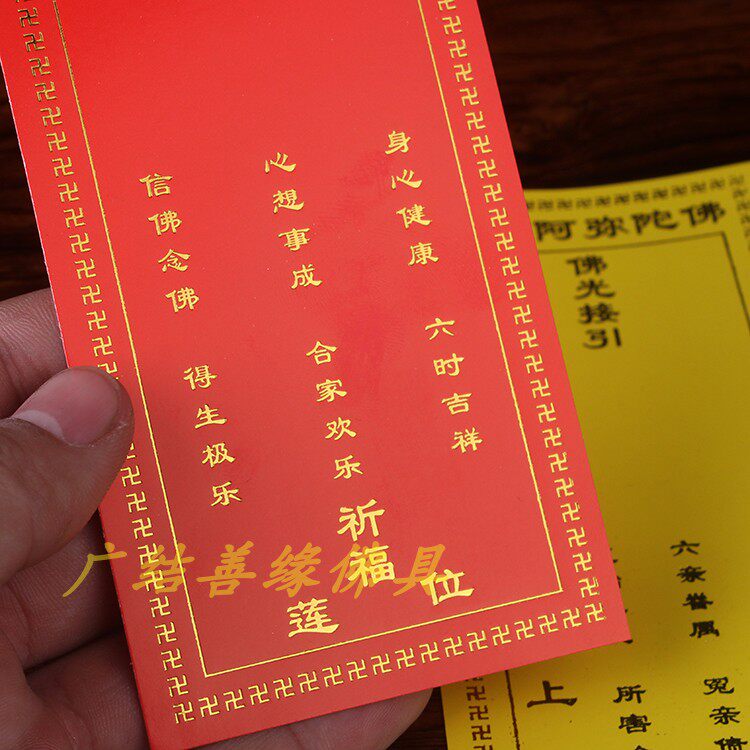 身心健康
六时吉祥
心想事成
合家欢乐
信佛念佛
得生极乐
祈福
莲 位
广结善缘佛具
阿弥陀佛
佛光接引
六亲眷属
冤亲债
所害
上